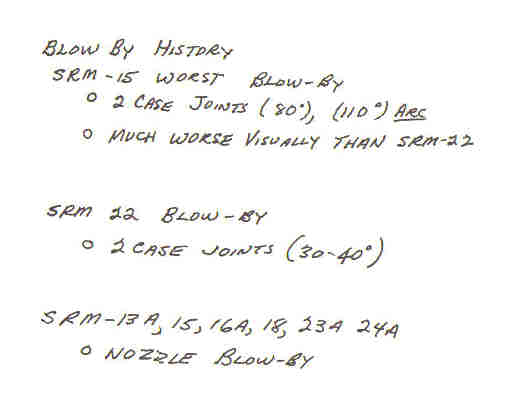 BLOW BY HISTORY
SRM-15 WORST BLOW-BY
o 2 CASE JOINTS (80°), (110°) ARC
o MUCH WORSE VISUALLY THAN SRM-22
SRM 22 BLOW-BY
o 2 CASE JOINTS (30-40°)
SRM-13A, 15, 16A, 18, 23A 24A
o NOZZLE BLOW-BY